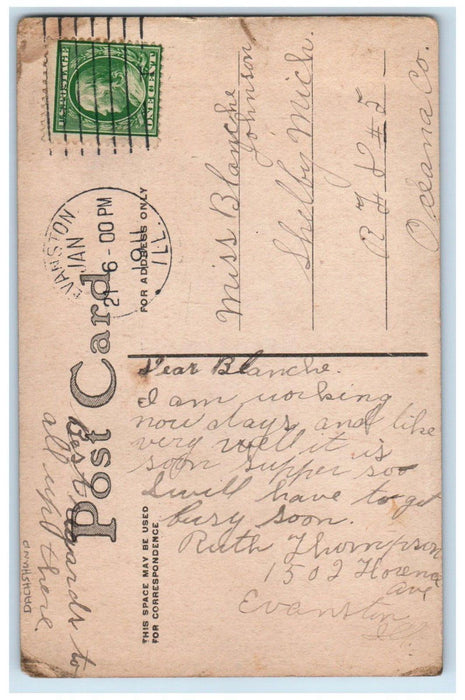 U.S. POSTAGE
ONE CENT
EVANSTON
JAN
21
6-00 PM
1911
ILL.
Post Card
FOR ADDRESS ONLY
THIS SPACE MAY BE USED
FOR CORRESPONDENCE
Miss Blanche
Johnson
Shelby Mich.
R F D #5
Oceana Co.
Dear Blanche.
I am working
now days and like
very well it is
soon supper soo
I will have to get
busy soon.
Ruth Thompson
1502 Florence
Ave
Evanston
Ill
Best regards to
all up there.
DACHSHUND